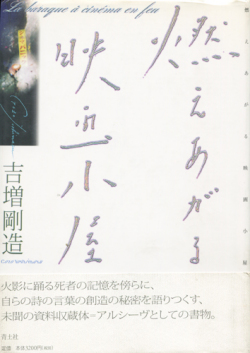 La baraque à cinéma en feu
燃えあがる
映画小屋
燃えあがる映画小屋
吉増剛造
火影に踊る死者の記憶を傍らに、
自らの詩の言葉の創造の秘密を語りつくす、
未聞の資料収蔵体=アルシーヴとしての書物。
青土社